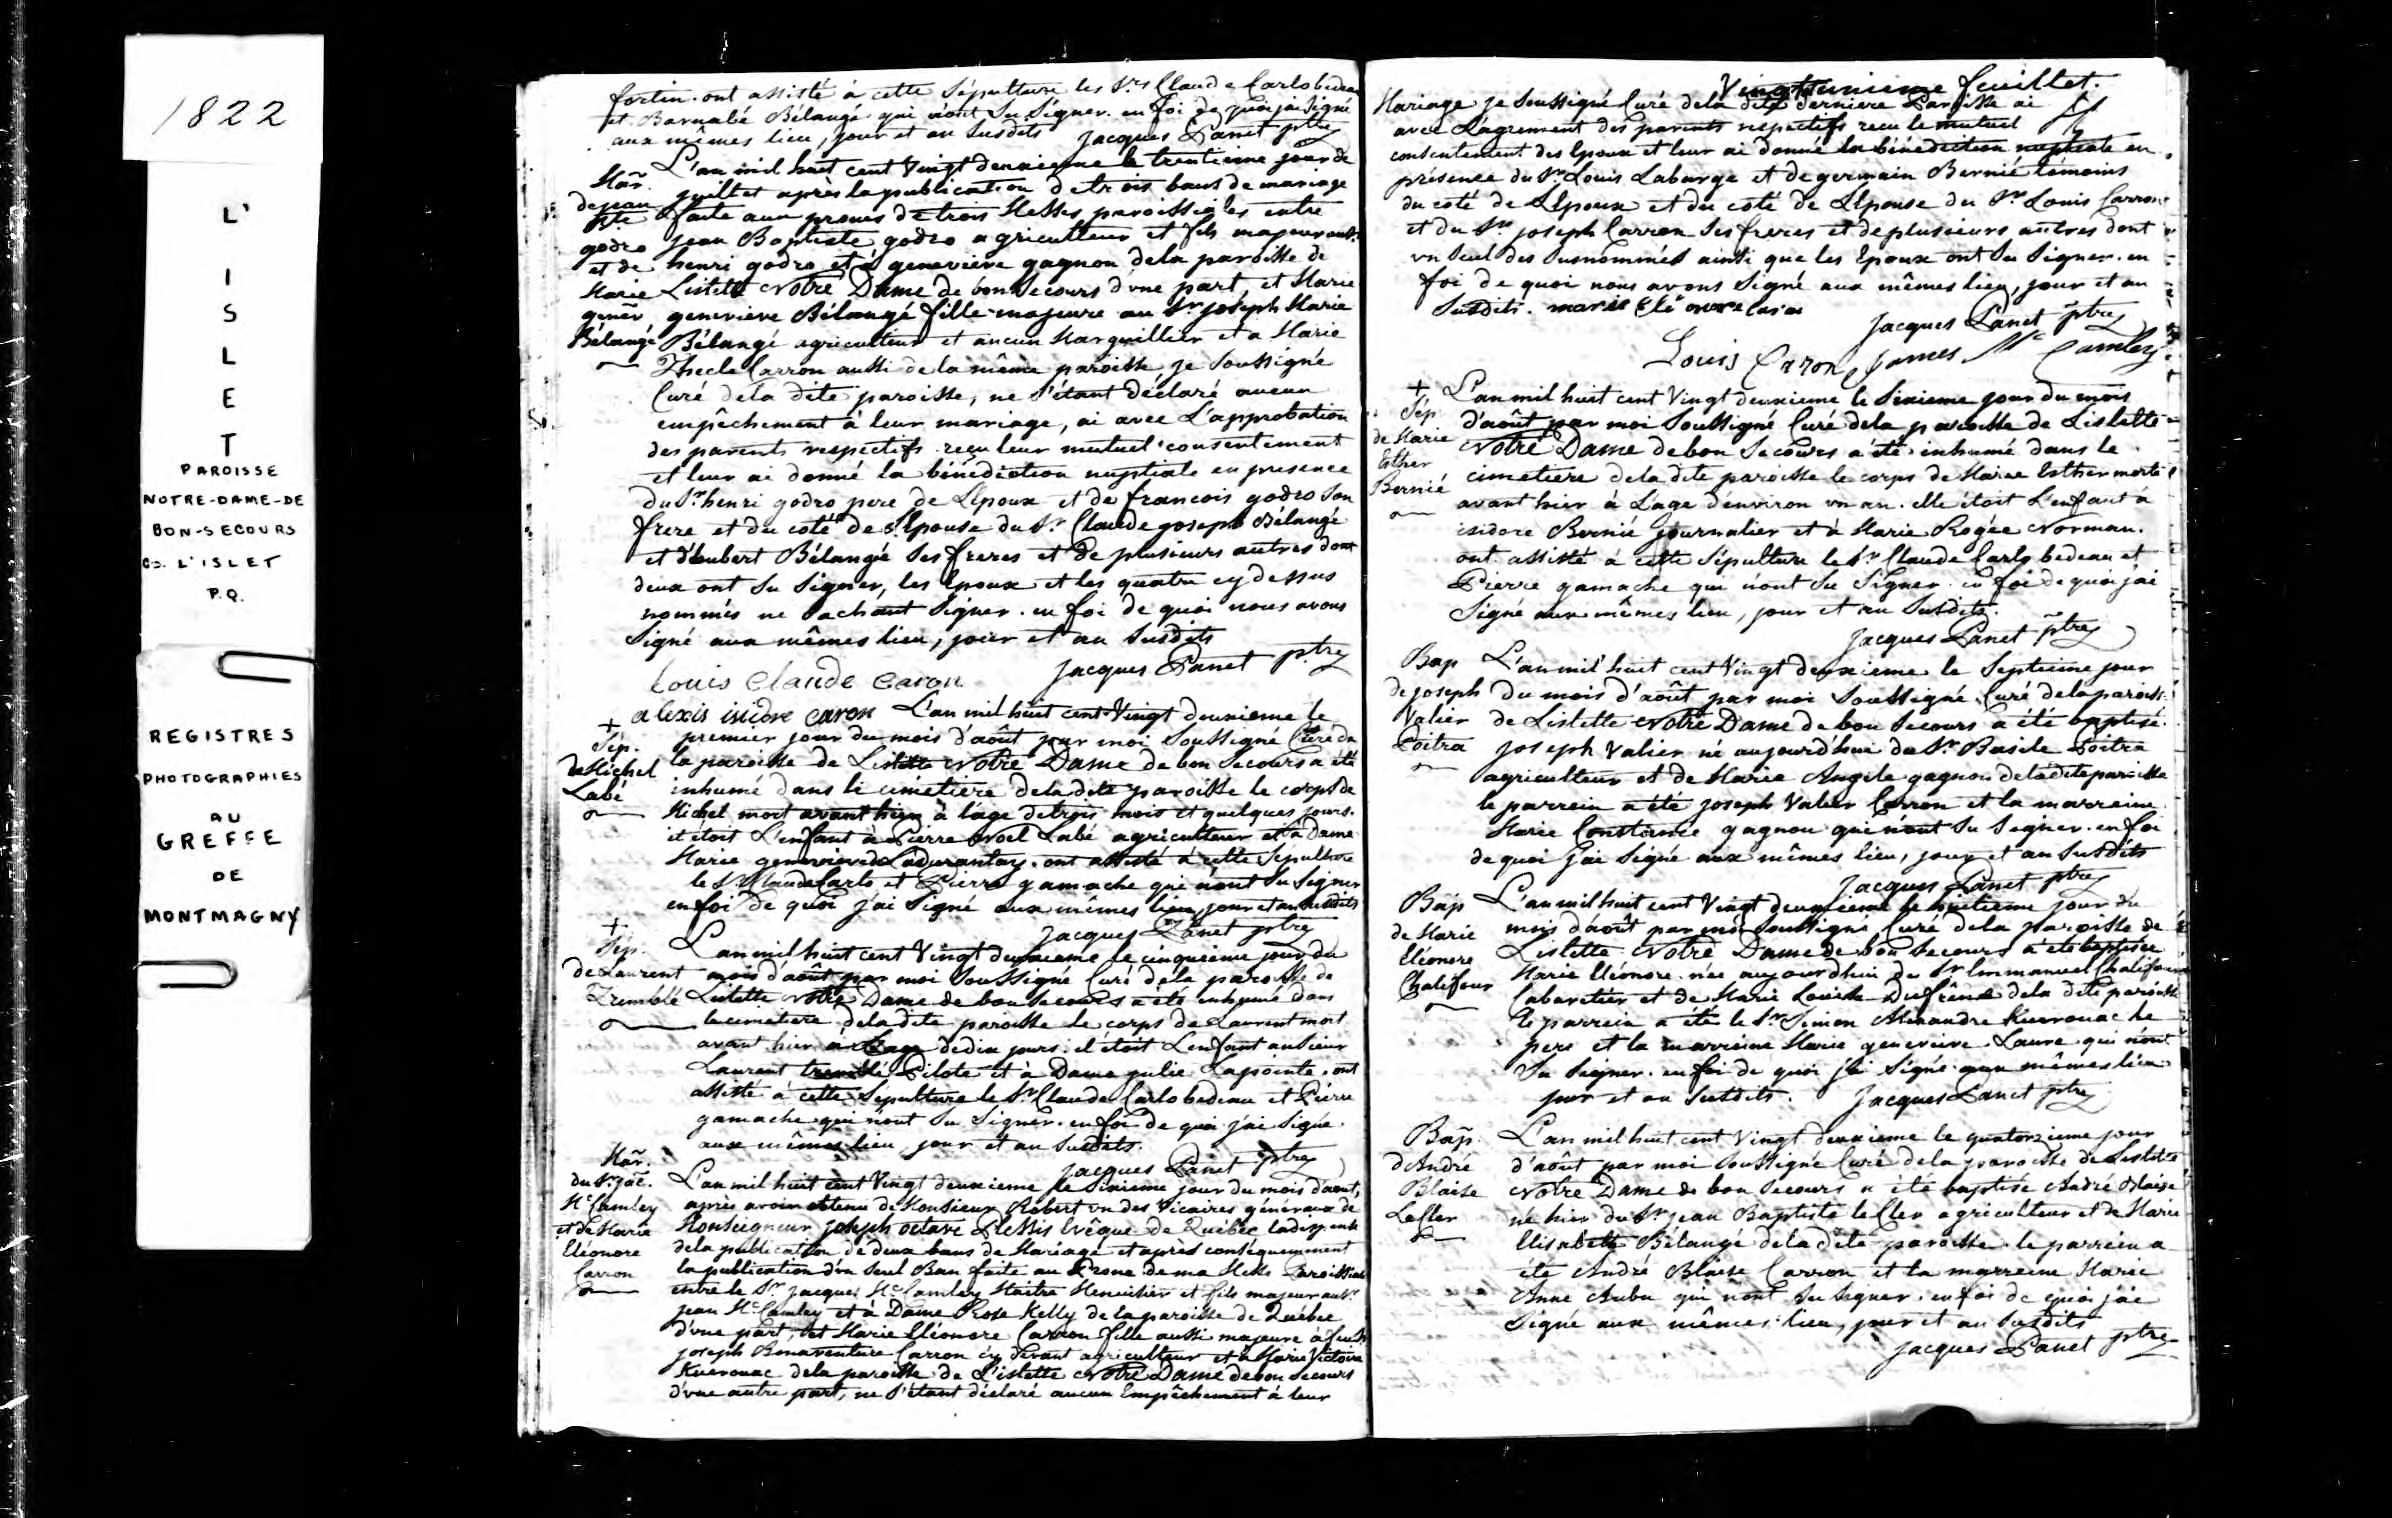 1822
L'
I
S
L
E
T
PAROISSE
NOTRE-DAME-DE
BON-SECOURS
Co. L'ISLET
P.Q.
REGISTRES
PHOTOGRAPHIES
AU
GREFFE
DE
MONTMAGNY
fortin. ont assisté à cette Sépulture les Srs Claude Carlo bedeau
et Barnabé Bélangé qui n'ont Su Signer. en foi de quoi j'ai Signé
aux mêmes lieu, jour et an Susdits Jacques Panet ptre
Mar.
de jean
Bte
godro
et de
Marie
genev
Bélangé
L'an mil huit cent Vingt deuxieme le trentieme jour de
juillet après la publication de trois bans de mariage
faite aux prones de trois Messes paroissiales entre
jean Baptiste godro agriculteur et fils majeur au Sr
henri godro et à geneviève gagnon de la paroisse de
Lislette Notre Dame de bon Secours d'une part, et Marie
genevieve Bélangé fille majeure au Sr joseph Marie
Bélangé agriculteur et ancien Marguillier et a Marie
Thecle Carron aussi de la même paroisse je Soussigné
Curé de la dite paroisse, ne S'étant déclaré aucun
empêchement à leur mariage, ai avec L'approbation
des parents respectifs reçu leur mutuel consentement
et leur ai donné la bénédiction nuptiale en presence
du Sr henri godro pere de L'Epoux et de francois godro son
frere et du coté de L'Epouse du Sr Claude joseph Bélangé
et d'hubert Bélangé Ses freres et de plusieurs autres dont
deux ont Su Signer, les Epoux et les quatre cy dessus
nommés ne Sachant Signer. en foi de quoi nous avons
Signé aux mêmes lieu, jour et an Susdits
Jacques Panet ptre
Louis Claude Caron
alexis isidore caron
+
Sép.
de Michel
Labé
L'an mil huit cent Vingt deuxieme le
premier jour du mois d'août par moi Soussigné Curé de
la paroisse de Lislette Notre Dame de bon Secours a été
inhumé dans le cimetiere de la dite paroisse le corps de
Michel mort avant hier à l'age de trois mois et quelques jours.
il étoit L'enfant à Pierre Noel Labé agriculteur et à Dame
Marie genevieve Ladurantay. ont assisté à cette Sépulture
le Sr Claude Carlo et Pierre gamache qui n'ont Su Signer
en foi de quoi j'ai Signé aux mêmes lieu, jour et an Susdits
Jacques Panet ptre
+
Sép.
de Laurent
Tremblé
L'an mil huit cent Vingt deuxieme le cinquieme jour du
mois d'août par moi Soussigné Curé de la paroisse de
Lislette Notre Dame de bon Secours a été inhumé dans
le cimetiere de la dite paroisse le corps de Laurent mort
avant hier à L'age de dix jours. il étoit L'enfant au Sieur
Laurent tremblé Pilote et à Dame julie Lapointe. ont
assisté à cette Sépulture le Sr Claude Carlo bedeau et Pierre
gamache qui n'ont Su Signer. en foi de quoi j'ai Signé
aux mêmes lieu, jour et an Susdits.
Jacques Panet ptre
Mar.
du Sr Jac.
Mc Camley
et de Marie
Eléonore
Carron
L'an mil huit cent Vingt deuxieme le Sixieme jour du mois d'aout,
après avoir obtenu de Monsieur Robert un des Vicaires généraux de
Monseigneur joseph octave Plessis Evêque de Québec la dispense
de la publication de deux bans de Mariage et après conséquemment
la publication d'un Seul Ban faite au Prone de ma Messe Paroissiale
entre le Sr jacques Mc Camley Maitre Menuisier et fils majeur au Sr
jean Mc Camley et à Dame Rose Kelly de la paroisse de Québec
d'une part, et Marie Eléonore Carron fille aussi majeure à feu Sr
joseph Bonaventure Carron cy devant agriculteur et à Marie Victoire
Kuerouac de la paroisse de L'islette Notre Dame de bon Secours
d'une autre part, ne S'étant déclaré aucun Empêchement à leur
Vingtunieme feuillet.
Mariage je Soussigné Curé de la dite derniere Paroisse ai
avec L'agrement des parents respectifs recu le mutuel
consentement des Epoux et leur ai donné la bénédiction nuptiale en
présence du Sr Louis Laburge et de germain Bernié témoins
du coté de L'Epoux et du coté de L'Epouse du Sr Louis Carron
et du Sr joseph Carron Ses freres et de plusieurs autres dont
un Seul des Susnommés ainsi que les Epoux ont Su Signer. en
foi de quoi nous avons Signé aux mêmes lieu, jour et an
Susdits. marie Elé onore Caron
Jacques Panet ptre
Louis Carron James Mc Camley
+
Sép
de Marie
Esther
Bernié
L'an mil huit cent Vingt deuxieme le Sixieme jour du mois
d'août par moi Soussigné Curé de la paroisse de Lislette
Notre Dame de bon Secours a été inhumé dans le
cimetiere de la dite paroisse le corps de Marie Esther morte
avant hier à L'age d'environ un an. elle étoit L'enfant à
isidore Bernié journalier et à Marie Rogée Norman.
ont assisté à cette Sépulture le Sr Claude Carlo bedeau et
Pierre gamache qui n'ont Su Signer. en foi de quoi j'ai
Signé aux mêmes lieu, jour et an Susdits.
Jacques Panet ptre
Bap
de joseph
Valier
Poitra
L'an mil huit cent Vingt deuxieme le Septieme jour
du mois d'août par moi Soussigné Curé de la paroisse
de Lislette Notre Dame de bon Secours a été baptisé
joseph Valier né aujourd'hui du Sr Basile Poitra
agriculteur et de Marie Angele gagnon de la dite paroisse
le parrein a été joseph Valier Carron et la marreine
Marie Constance gagnon qui n'ont Su Signer. en foi
de quoi j'ai Signé aux mêmes lieu, jour et an Susdits
Jacques Panet ptre
Bap
de Marie
Eléonore
Chalifour
L'an mil huit cent Vingt deuxieme le huitieme jour du
mois d'août par moi Soussigné Curé de la paroisse de
Lislette Notre Dame de bon Secours a été baptisée
Marie Eléonore née aujourd'hui du Sr Emmanuel Chalifour
Cabaretier et de Marie Louise Dufrêne de la dite paroisse
le parrein a été le Sr Simon Alexandre Kuerouac le
pere et la marreine Marie genevieve Laure qui n'ont
Su Signer. en foi de quoi j'ai Signé aux mêmes lieu
jour et an Susdits. Jacques Panet ptre
Bap.
d'André
Blaise
LeCler
L'an mil huit cent Vingt deuxieme le quatorzieme jour
d'août par moi Soussigné Curé de la paroisse de Lislette
Notre Dame de bon Secours a été baptisé André Blaise
né hier du Sr jean Baptiste leCler agriculteur et de Marie
Elisabeth Bélangé de la dite paroisse. le parrein a
été André Blaise Carron et la marreine Marie
Anne Aubu qui n'ont Su Signer. en foi de quoi j'ai
Signé aux mêmes lieu, jour et an Susdits
Jacques Panet ptre